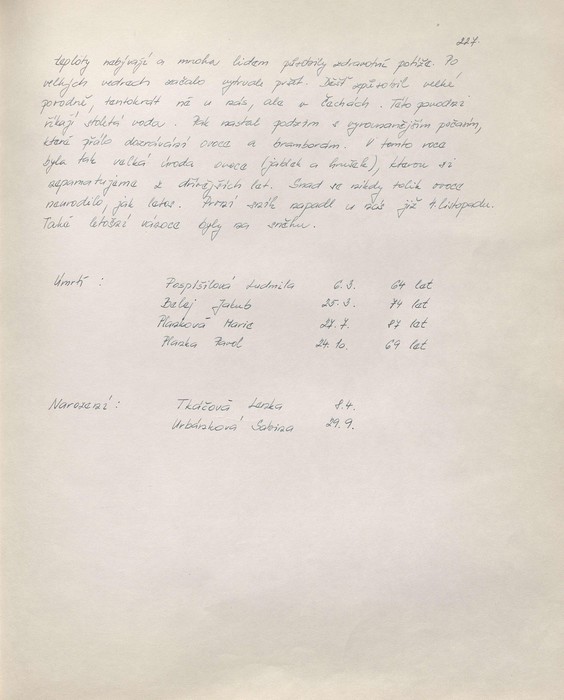 227.
teploty nebývají a mnoha lidem působily zdravotní potíže. Po
velkých vedrech začalo vytrvale pršet. Déšť způsobil velké
povodně, tentokrát ne u nás, ale v Čechách. Této povodni
říkají stoletá voda. Pak nastal podzim s vyrovnanějším počasím,
které přálo dozrávání ovoce a bramborám. V tomto roce
byla tak velká úroda ovoce (jablek a hrušek), kterou si
nepamatujeme z dřívějších let. Snad se nikdy tolik ovoce
neurodilo, jak letos. První sníh napadl u nás již 4. listopadu.
Také letošní vánoce byly na sněhu.
Úmrtí : Pospíšilová Ludmila 6.3. 64 let
Belej Jakub 25.3. 74 let
Hlavková Marie 27.7. 87 let
Pavol 24.10. 69 let
Narození : Tkáčová Lenka 8.4.
Urbánková Sabina 29.9.